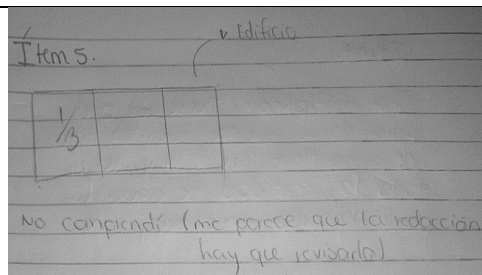 Edificio
Ítem 5.
1/3
No comprendí (me parece que la redacción
hay que revisarla)